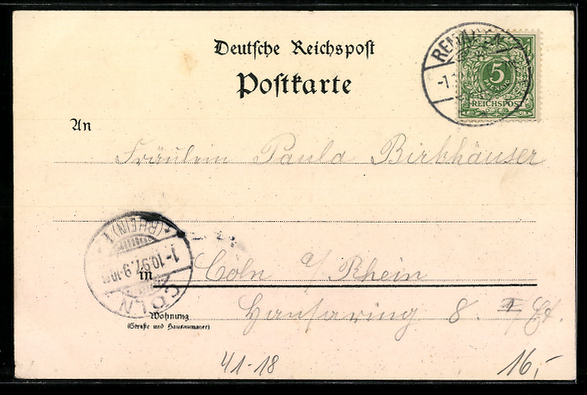 Deutsche Reichspost
Postkarte
5
PFENNIG
REICHSPOST
An
Fräulein Paula Birkhäuser
(RHEIN) 1.
1-10.97. 9-10
CÖLN
in Cöln a/Rhein
Hansaring 8. I/Et.
Wohnung
(Straße und Hausnummer)
41-18
16,-